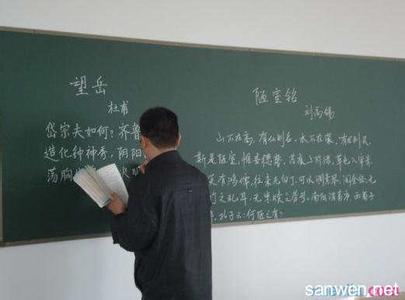 望岳
杜甫
岱宗夫如何?齐鲁
造化钟神秀,阴阳
荡胸
陋室铭
刘禹锡
山不在高,有仙则名.水不在深,有龙则灵.
斯是陋室,惟吾德馨.苔痕上阶绿,草色入帘青.
笑有鸿儒,往来无白丁.可以调素琴,阅金经.无
竹之乱耳,无案牍之劳形.南阳诸葛庐,西蜀子
孔子云:何陋之有?
sanwen.net